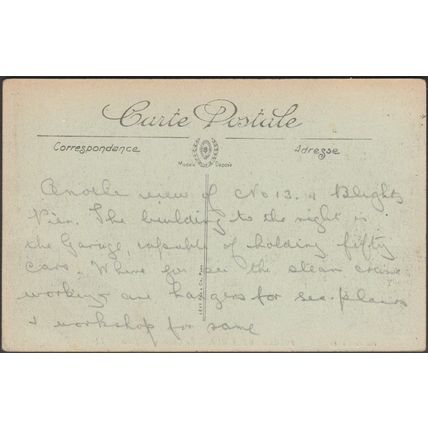 Carte Postale
Correspondance
Adresse
Modèle Déposé
Another view of No 13. & Blighty
View. The building to the right is
the Garage, capable of holding fifty
cars. Where you see the steam crane
working are hangers for sea-planes
& workshop for same